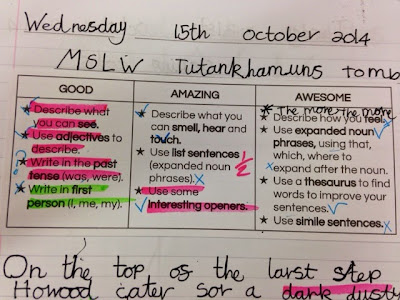 Wednesday 15th October 2014
MSLW Tutankhamuns tomb
GOOD
★ Describe what you can see.
★ Use adjectives to describe.
★ Write in the past tense (was, were).
★ Write in first person (I, me, my).
AMAZING
★ Describe what you can smell, hear and touch.
★ Use list sentences (expanded noun phrases).
★ Use some interesting openers.
1/2
AWESOME
★ The more, the more
★ Describe how you feel.
★ Use expanded noun phrases, using that, which, where to expand after the noun.
★ Use a thesaurus to find words to improve your sentences.
★ Use simile sentences.
On the top os the larst step
Howod cater sor a dark dusty